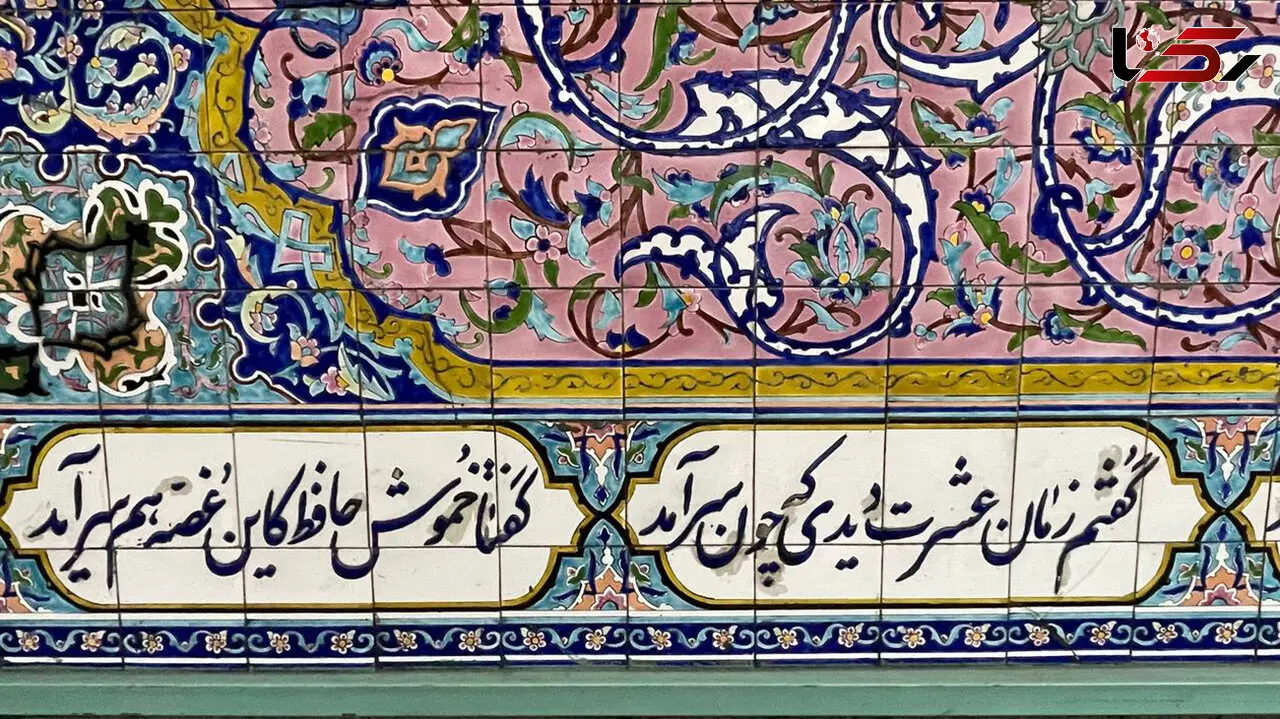 رکنا
گفتم زمان عشرت دیدی که چون سرآمد
گفتا خموش حافظ کاین غصّه هم سرآمد